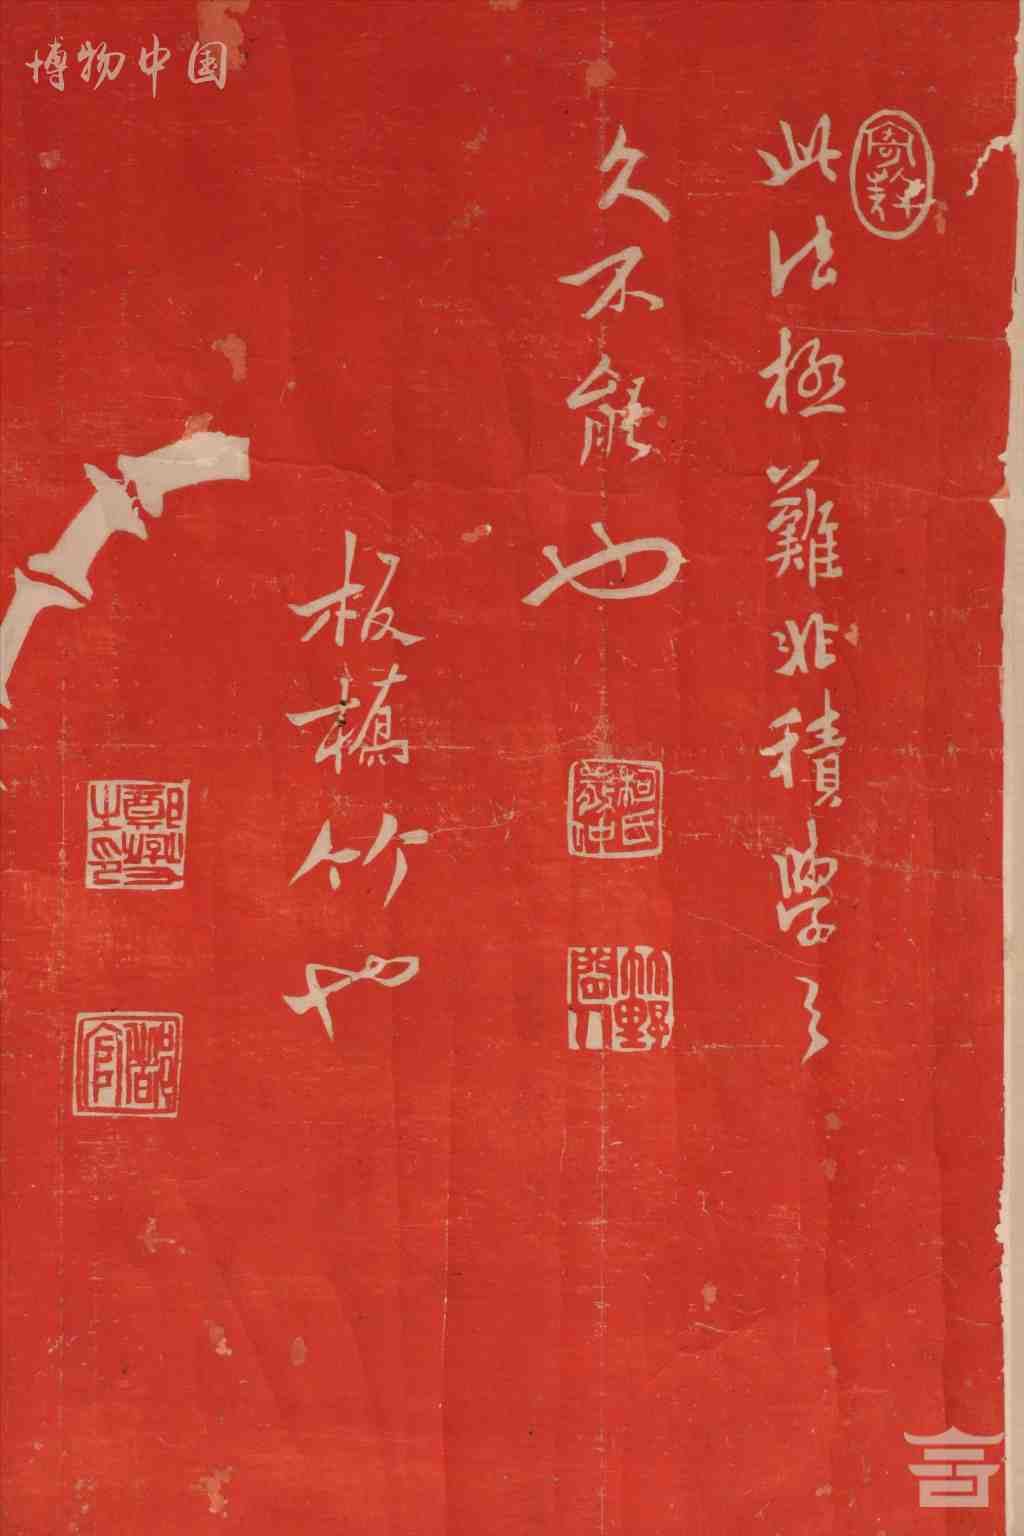 博物中国
此法極難非積學之
久不能也
板橋竹也
鄭燮之印